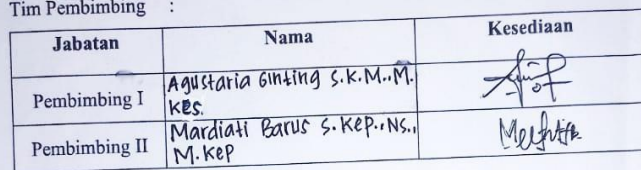 Tim Pembimbing :
Jabatan Nama Kesediaan
Pembimbing I Agustaria Ginting S.K.M., M.
Kes.
Pembimbing II Mardiati Barus S.Kep., Ns.,
M.Kep